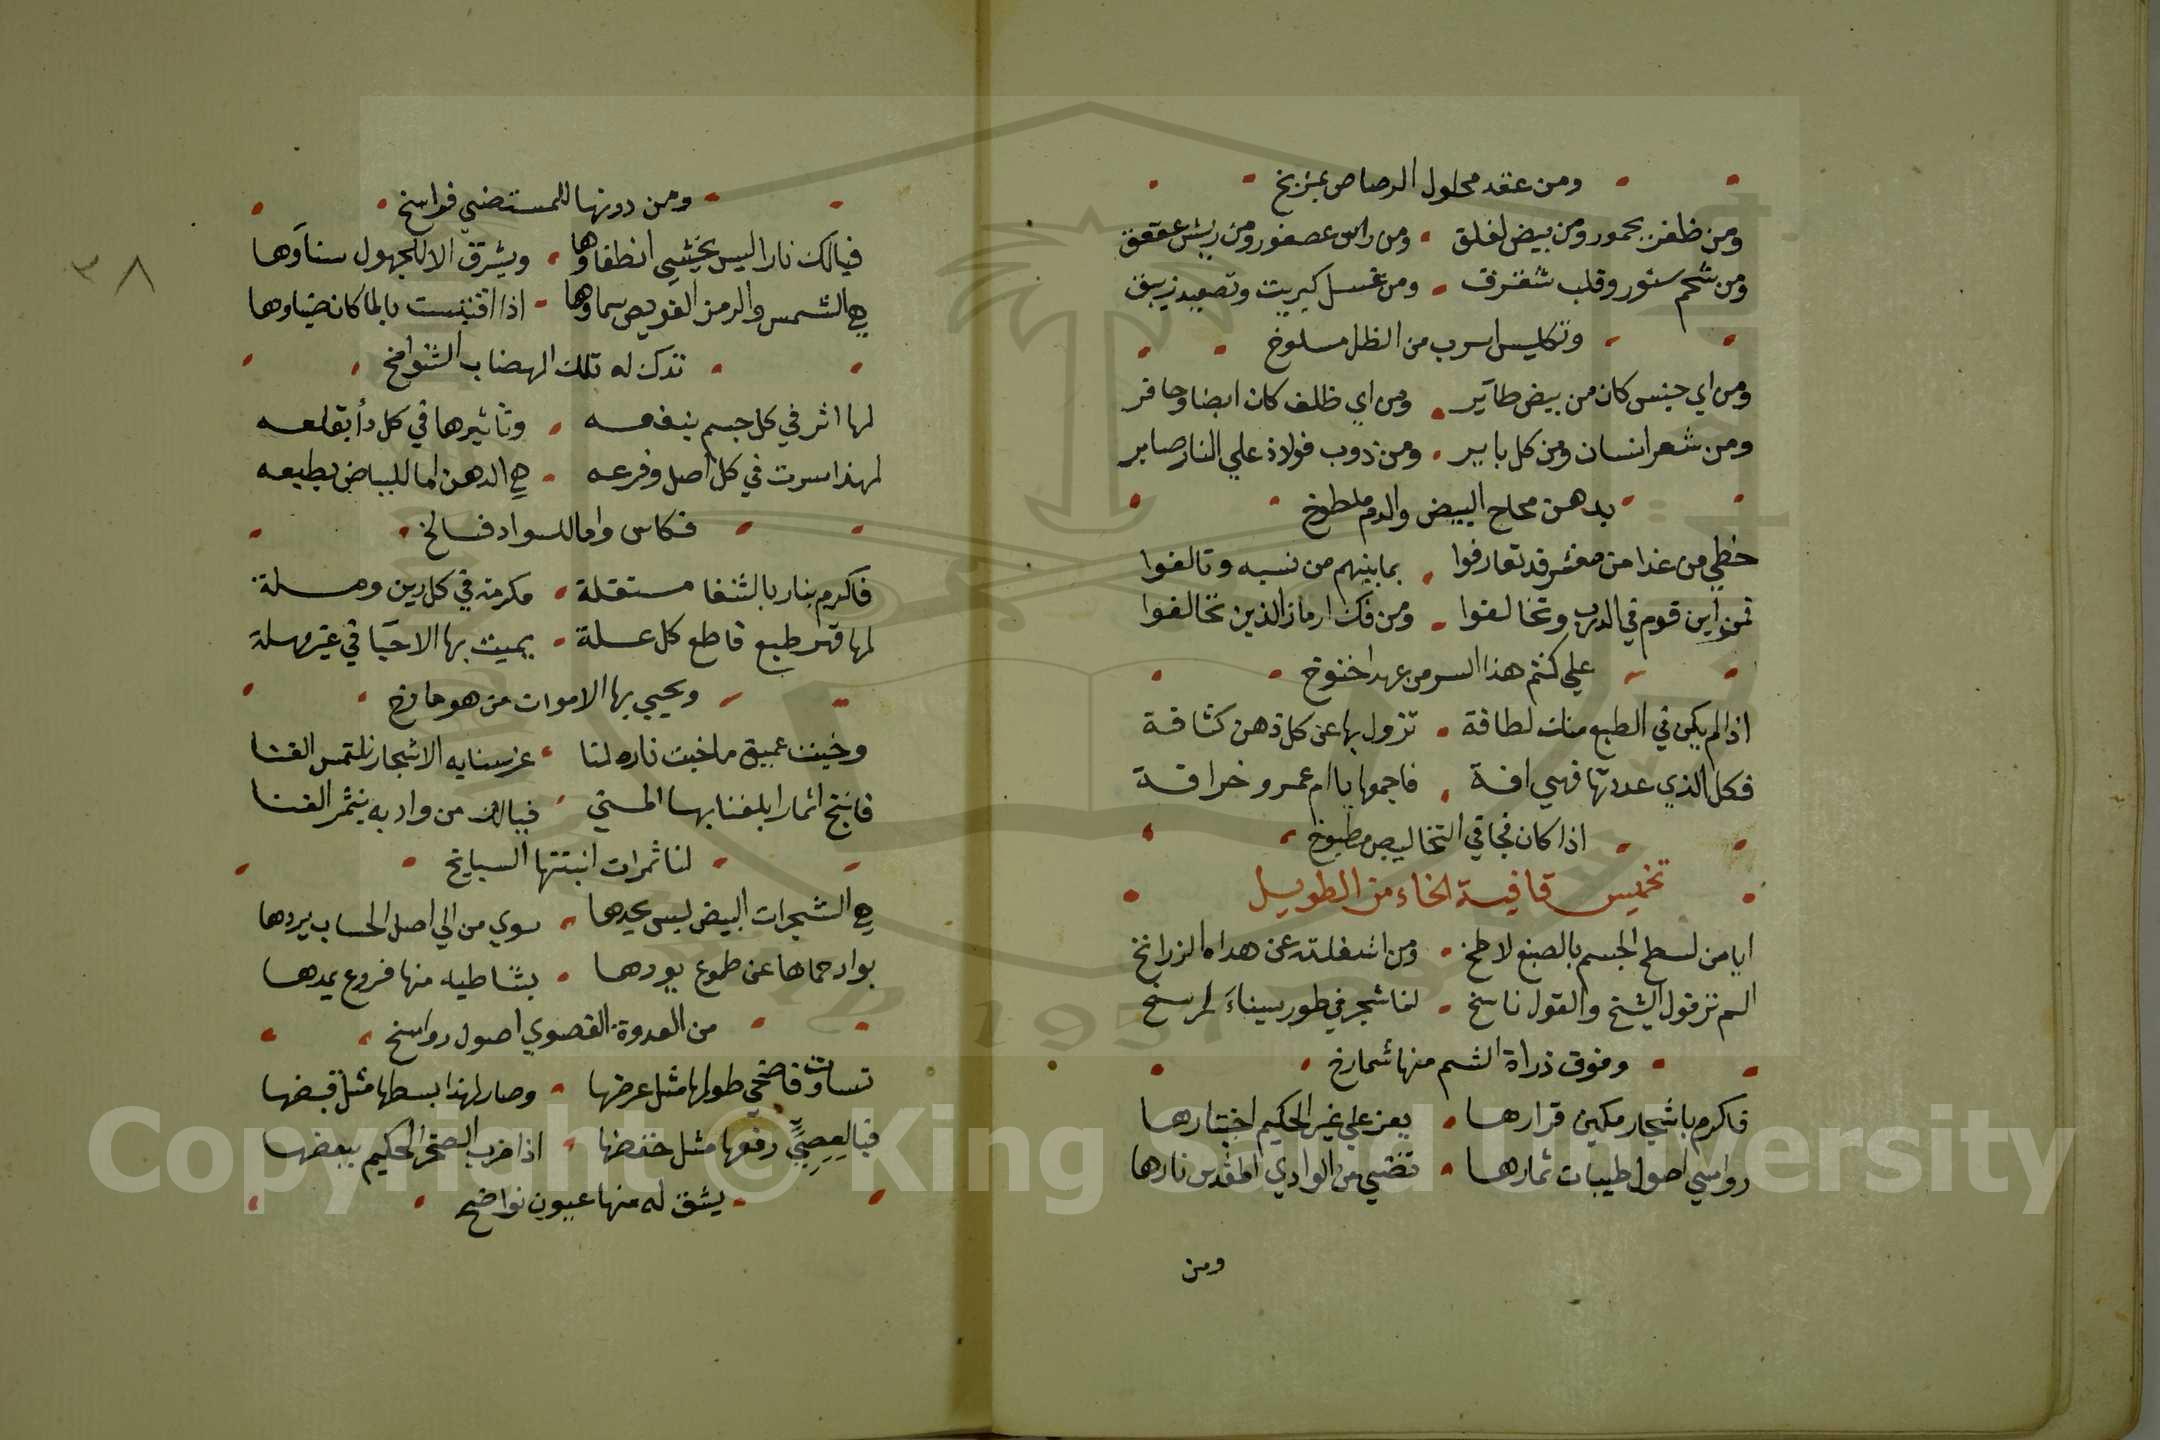 ومن عقد محلول الرصاص بمزيخ
ومن ظلف يحمور ومن بيض لقلق ومن راس عصفور ومن ريش عقعق
ومن شحم سنور وقلب شفرق ومن غسل كبريت وتصعيد زيبق
وتكليس اسرب من الظل مسلوخ
ومن اي جنس كان من بيض طآير ومن اي ظلف كان ايضا وحافر
ومن شعر انسان ومن كل باير ومن ذوب فولاذ علي النار صابر
بدهن محاح البيض والدم ملطوخ
خطي من غذا من معشر قد تعارفوا بما بينهم من نسبه وتالفوا
فمن اين قوم في الدرب وتخالفوا ومن فك ارماز الذين تخالفوا
علي كتم هذا السر من عهد اخنوخ
اذا لم يكن في الطبع منك لطافة تزول بها عن كل ذهن كثافة
فكل الذي عددتها فهي افة فاجمعها يا ام عمرو خرافة
اذا كان فجا في التخاليص مطبوخ
تخميس قافية الخاء من الطويل
ايا من لسطح الجسم بالصبغ لاطخ ومن اشغلته عن هداه الزرانخ
الم تر قول الشيخ والقول ناسخ لنا شجر في طور سيناء لرسخ
وفوق ذراة الشم منها شمارخ
فاكرم باشجار مكين قرارها يعز علي غير الحكيم اختبارها
رواسي اصول طيبات ثمارها تضي من الوادي المقدس نارها
ومن
ومن دونها للمستضي فراسخ
فيالك نارا ليس يخشي انطفاوها ويشرق الا للجهول سناوها
هي الشمس والرمز العويص سماوها اذا اقتبست بالما كان ضياوها
تدك له تلك الهضاب الشوامخ
لها اثر في كل جسم ينفعه وتاثيرها في كل دأ بقلعه
لهذا سرت في كل اصل وفرعه هي الدهن اما للبياض بطبعه
فكاس واما للسواد فسالخ
فاكرم بنار بالشفا مستقلة مكرمة في كل دين وملة
لها قهر طبع قاطع كل علة يميت بها الاحيا في غير مهلة
ويحيي بها الاموات من هو مارخ
وخبت عميق ما خبت ناره لنا غرسنا به الاشجار نلتمس الغنا
فانتج اثمارا بلغنا بها المني فيالك من واد به يثمر الفنا
لنا ثمرات انبتتها السبايخ
هي الشجرات البيض ليس يحدها سوي من الي اصل الحساب يردها
بواد حماها عن طموع يودها بشاطيه منها فروع يمدها
من العدوة القصوي اصول رواسخ
تساوت فاضحي طولها مثل عرضها وصار لهذا بسطها مثل قبضها
فيا لعصي رفعها مثل خفضها اذا ضرب الصخر الحكيم ببعضها
يشق له منها عيون نواضح
٣٨
Copyright © King Saud University
1957